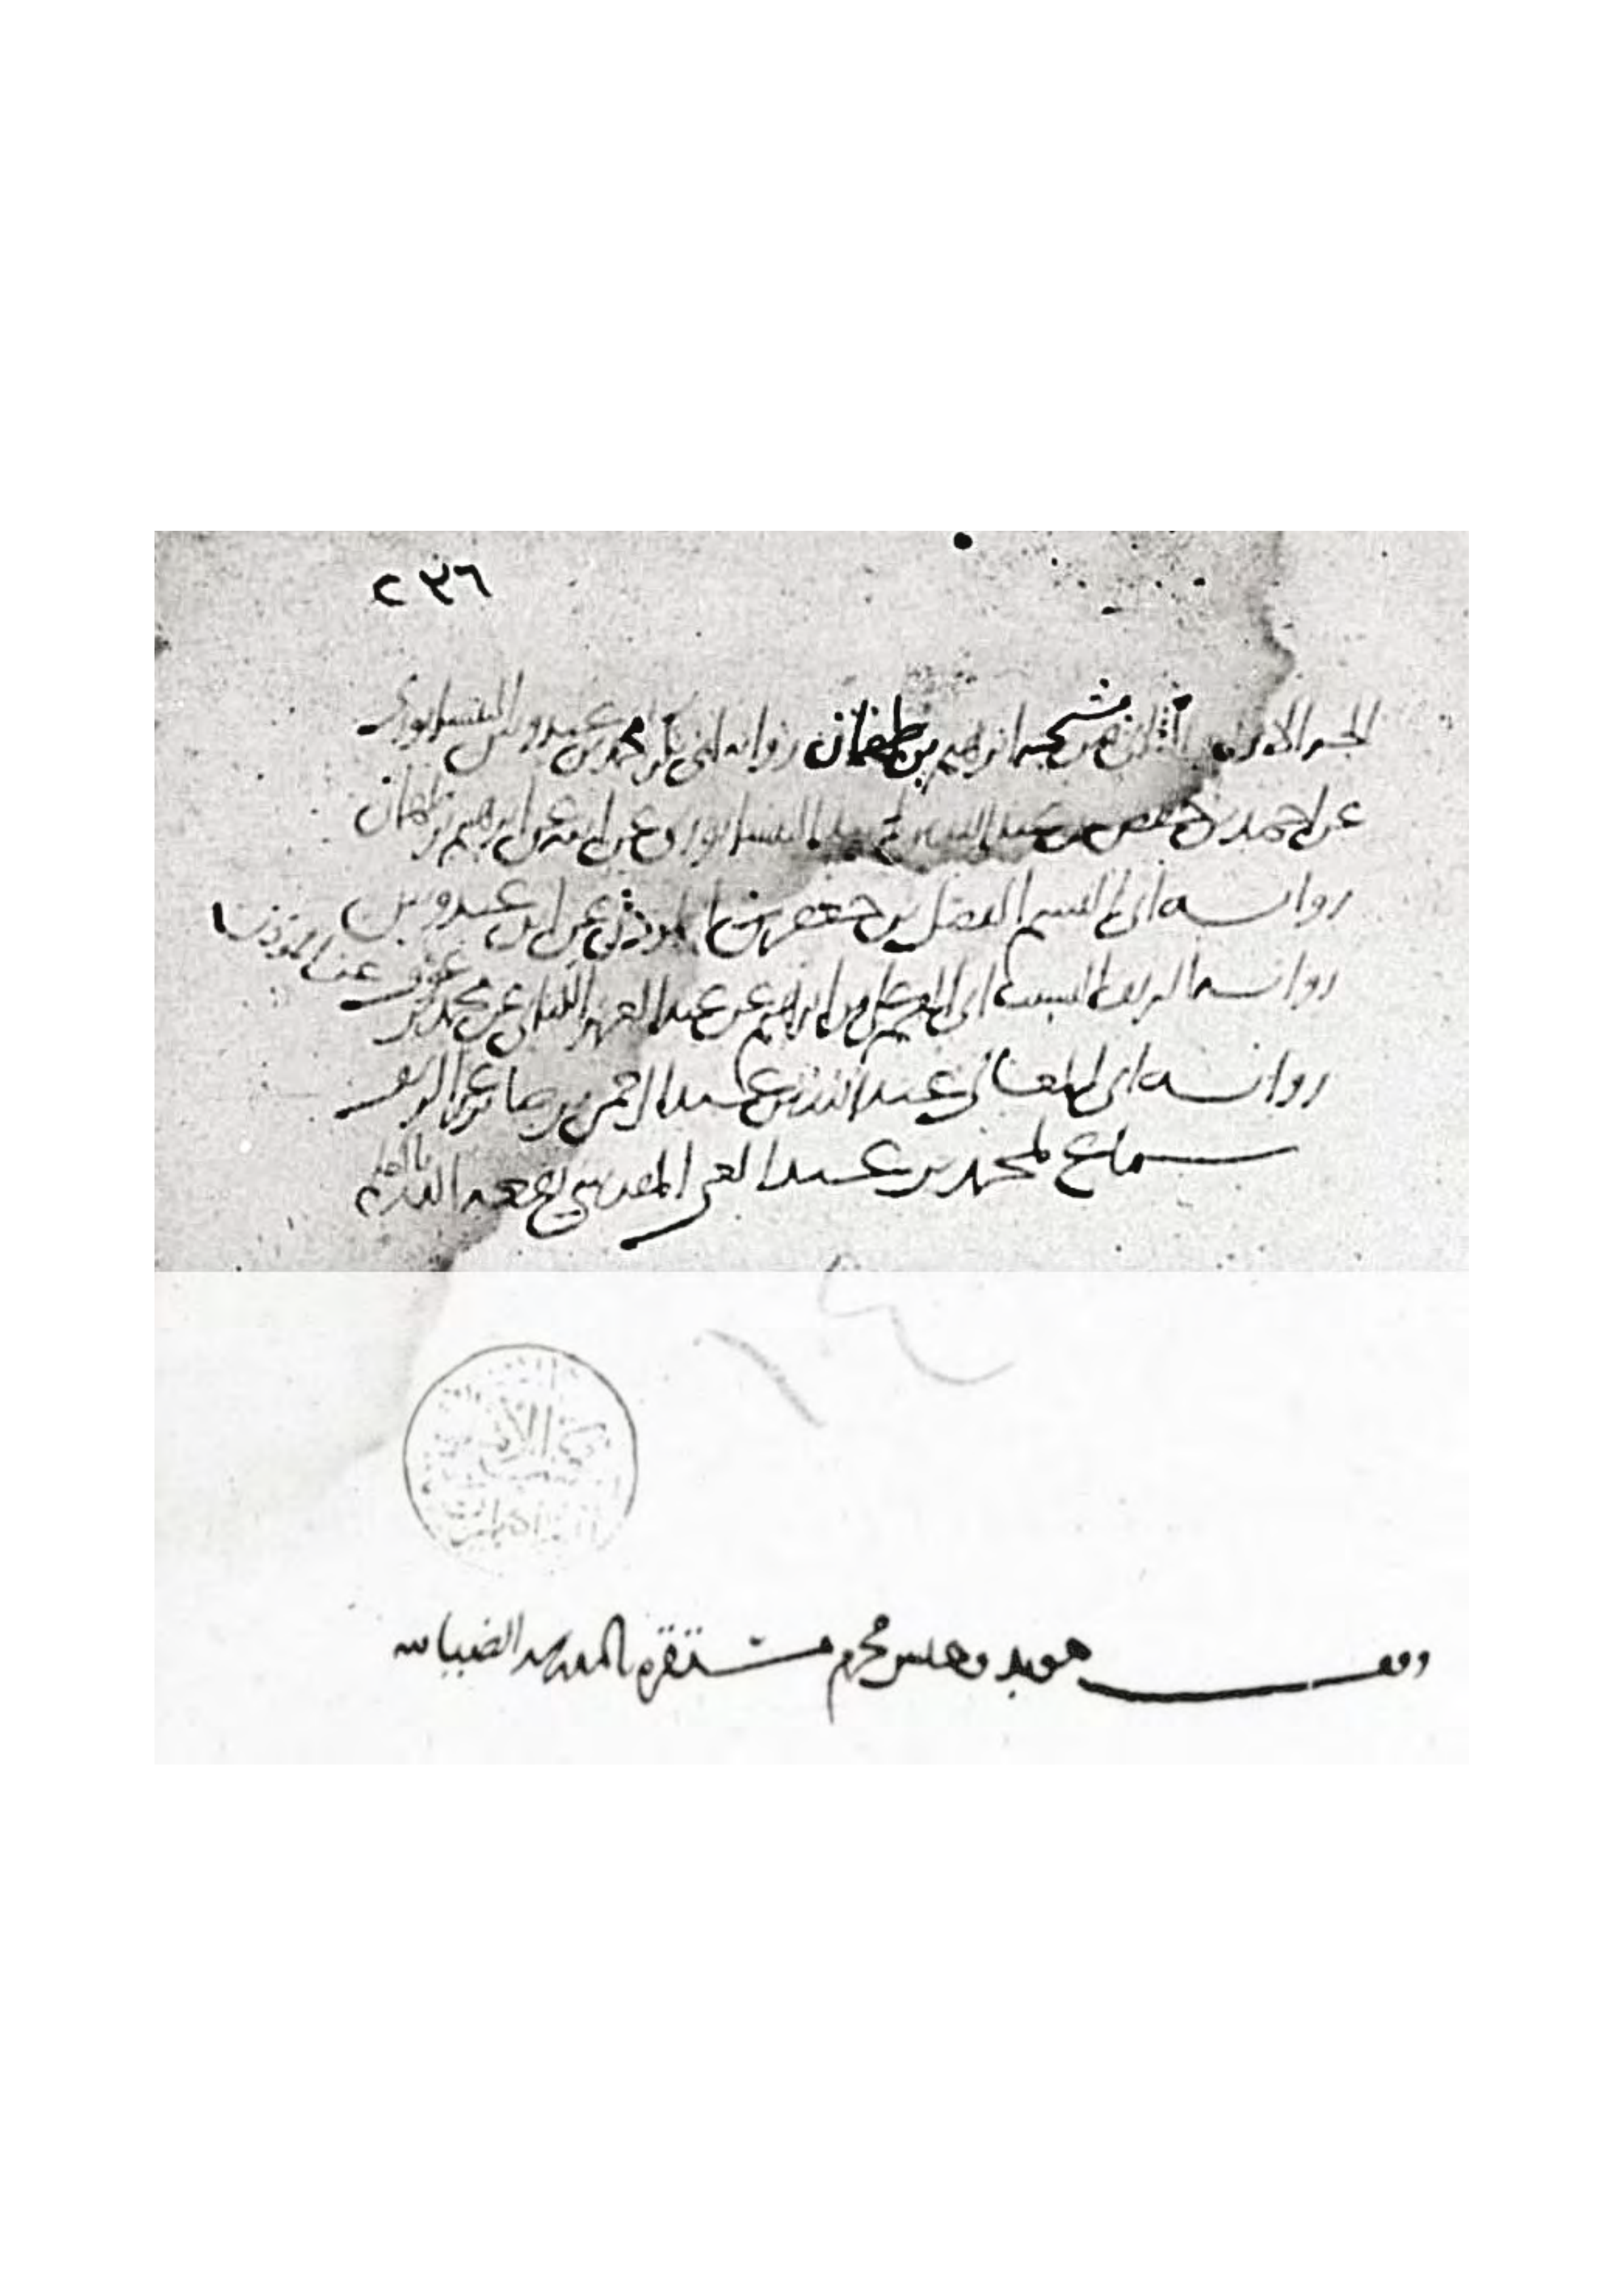 ٢٣٦
الجزء الاول والثاني من مشيخة ابراهيم بن طهمان رواية ابي بكر محمد بن عبدوس النيسابوري
عن احمد بن حفص بن عبد الله النيسابوري عن ابيه عن ابراهيم بن طهمان
رواية ابي القسم الفضل بن جعفر المؤذن عن ابن عبدوس
رواية الشريف النسيب ابي القسم علي بن ابراهيم عن عبد العزيز الكتاني عن محمد بن عوف عن المؤذن
رواية ابي المعالي عبد الله بن عبد الرحمن بن صابر عن الشريف
سماع لمحمد بن عبد الغني المقدسي نفعه الله به
وقف مؤبد وحبس محرم مستقره بالمدرسة الضيائية